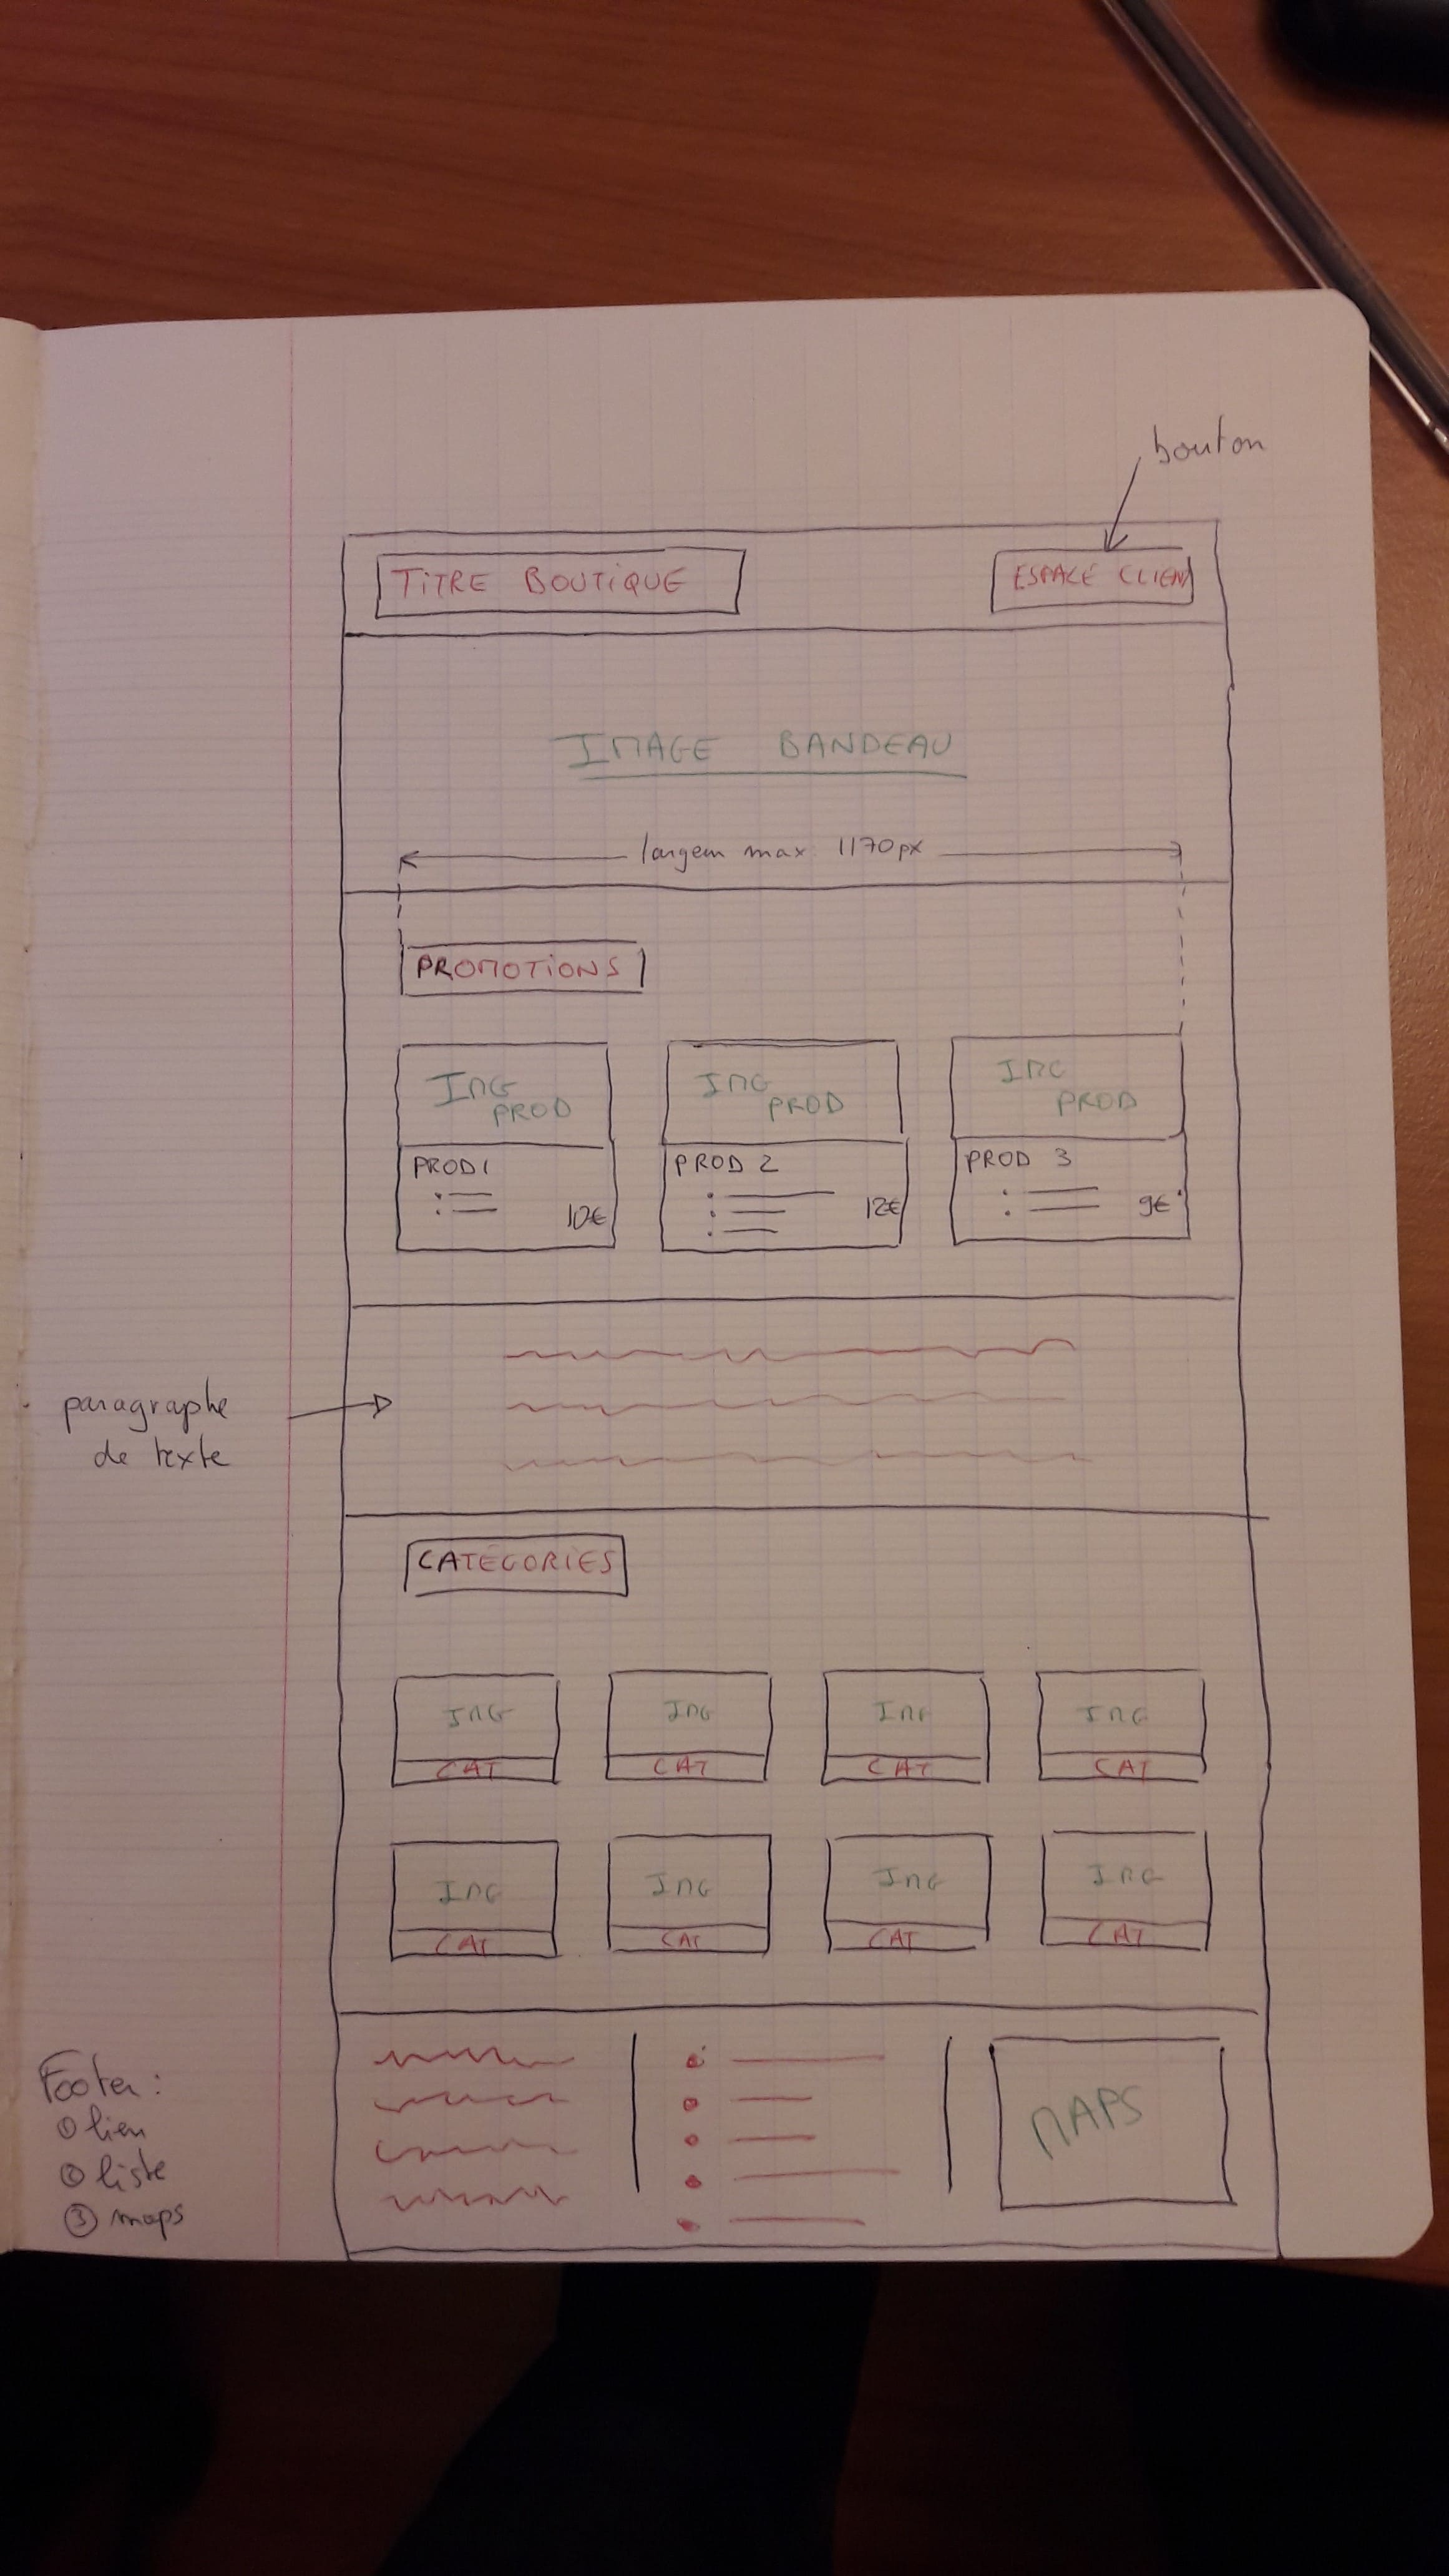 bouton
TiTRE BOUTiQUE
ESPACE CLIENT
IMAGE BANDEAU
largeur max 1170px
PROMOTIONS
IMG PROD
IMG PROD
IMG PROD
PROD1
PROD 2
PROD 3
10€
12€
9€
paragraphe
de texte
CATEGORIES
IMG
IMG
IMG
IMG
CAT
CAT
CAT
CAT
IMG
IMG
IMG
IMG
CAT
CAT
CAT
CAT
Footer :
① lien
② liste
③ maps
MAPS